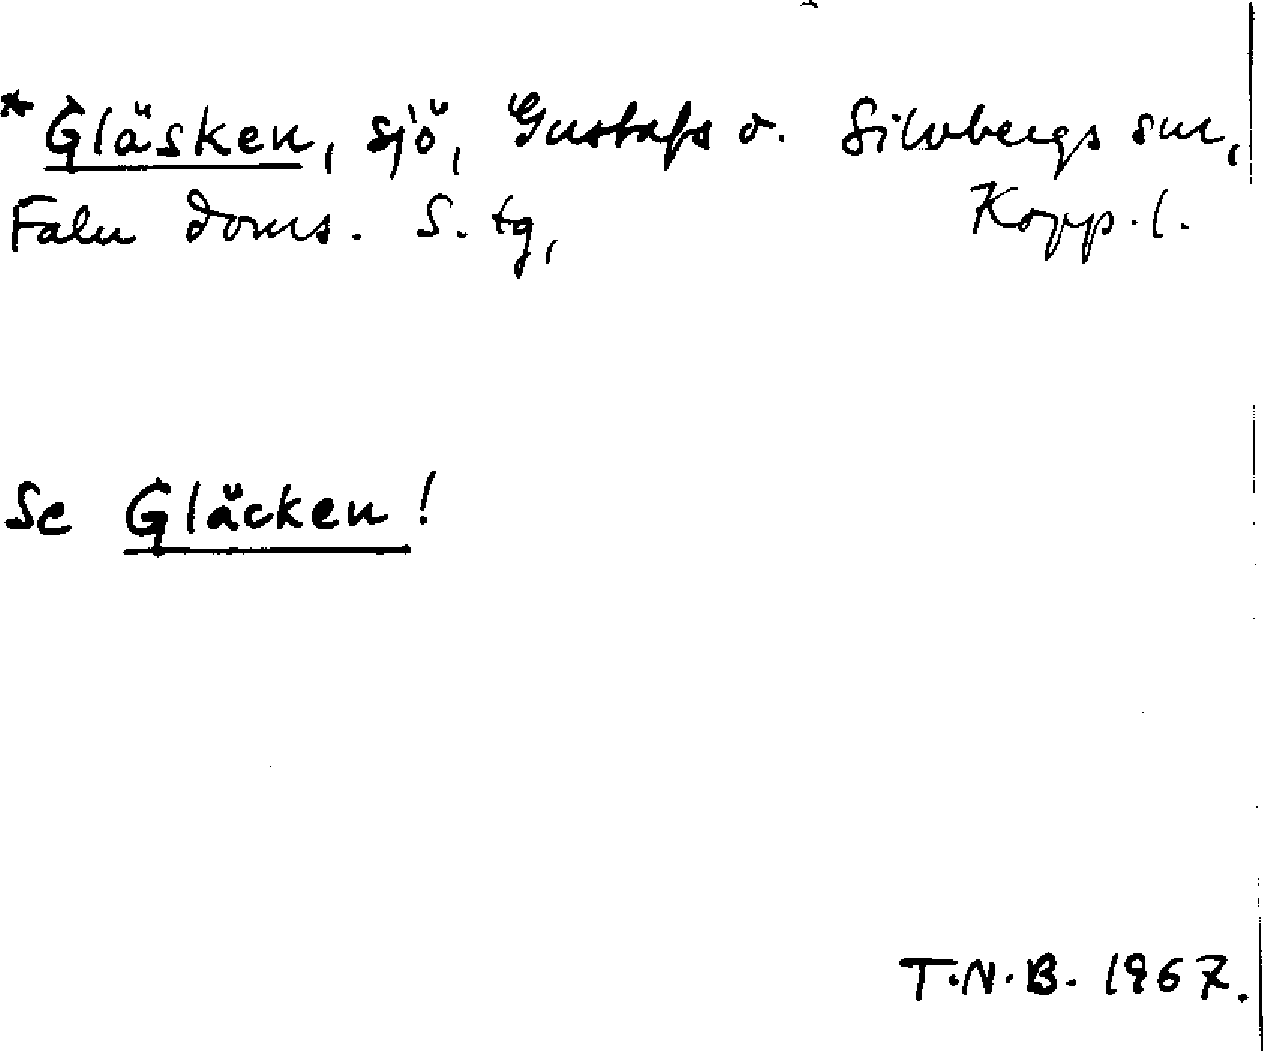 *Gläsken, sjö, Gustafs o. Silvbergs snr,
Falu doms. S. tg, Kopp. l.
Se Gläcken!
T.N.B. 1967.